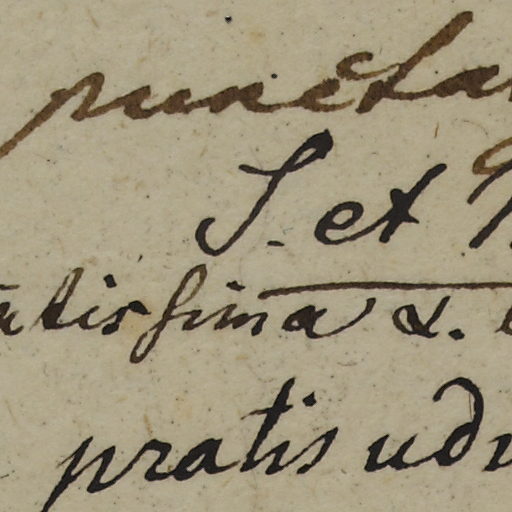 puncta
S. et
atissima α.
pratis ud